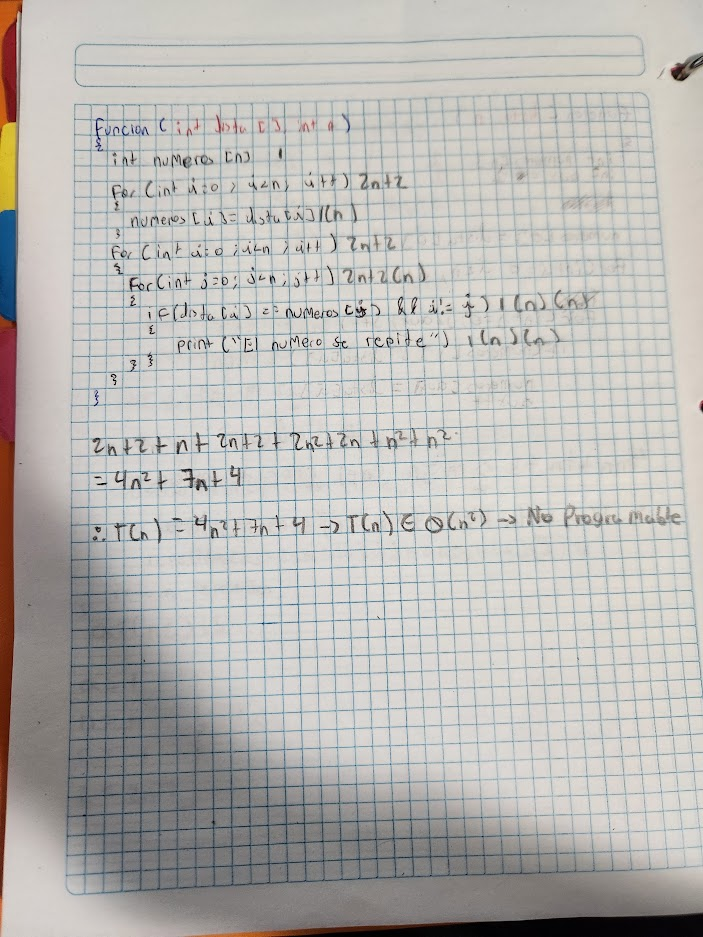 Funcion (int lista [], int n)
{
int numeros [n] 1
For (int i=0 ; i<n; i++) 2n+2
{
numeros [i] = lista[i] 1(n)
}
For (int i=0 ; i<n ; i++) 2n+2
{
For (int j=0; j<n; j++) 2n+2(n)
{ if (lista[i] == numeros [j] && i != j) 1(n)(n)
{
print ("El numero se repite") 1(n)(n)
} }
}
}
2n+2 + n + 2n+2 + 2n²+2n + n² + n²
= 4n² + 7n + 4
∴ T(n) = 4n²+7n+4 → T(n) ∈ O(n²) → No Programable